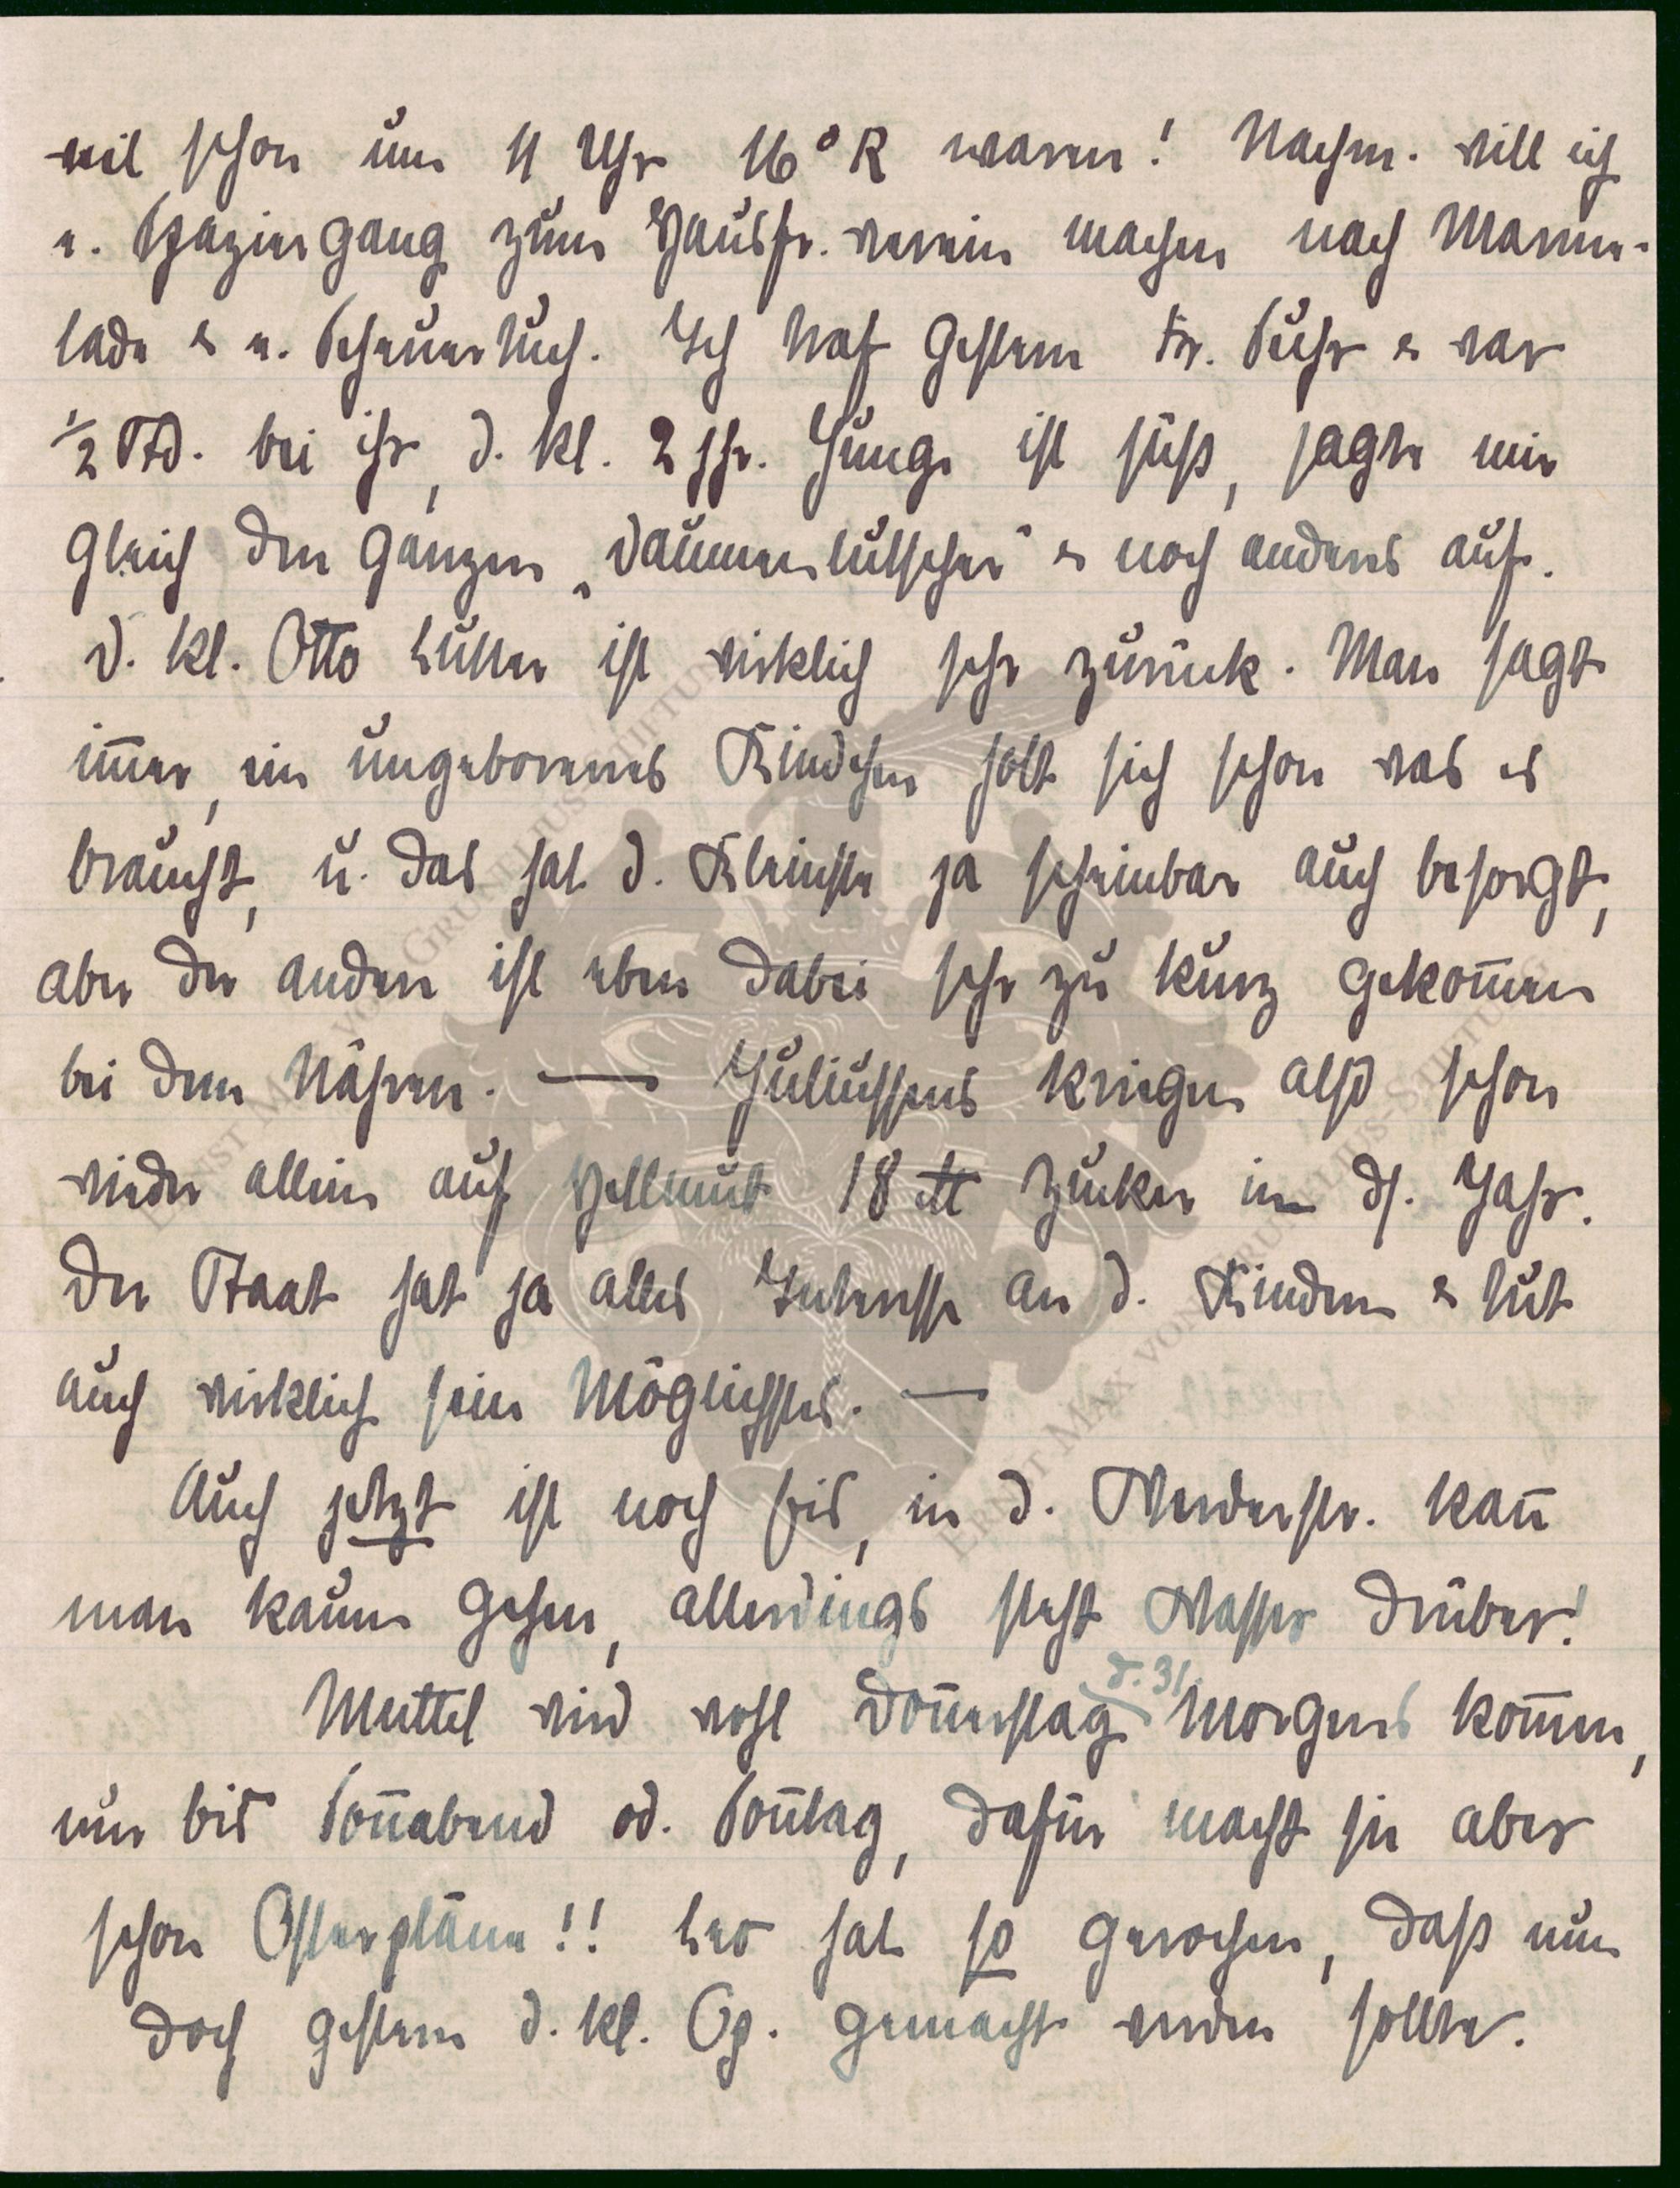 weil schon um 11 Uhr 16° R waren! Nachm. will ich
e. Spaziergang zum Hausfr. verein machen nach Marme-
lade & e. Scheuertuch. Ich traf gestern Fr. Suhr & war
½ Std. bei ihr, d. kl. 2 jhr. Junge ist süß, sagte mir
gleich den ganzen „Daumenlutscher" & noch anderes auf.
D. kl. Otto Lütter ist wirklich sehr zurück. Man sagt
im̅er, ein ungeborenes Kindchen holt sich schon was es
braucht, u. das hat d. Kleinste ja scheinbar auch besorgt,
aber der andere ist eben dabei sehr zu kurz gekom̅en
bei dem Nähren. — Juliussens kriegen also schon
wieder allein auf Hellmut 18 ℔ Zucker in ds. Jahr.
Der Staat hat ja alles Interesse an d. Kindern & tut
auch wirklich sein Möglichstes. —
Auch jetzt ist noch Eis, in d. Werderstr. kan̅
man kaum gehen, allerdings steht Wasser drüber!
d. 31
Muttel wird wohl Don̅erstag Morgens kom̅en,
nur bis Son̅abend od. Son̅tag, dafür macht sie aber
schon Osterpläne!! Leo hat so gerochen, daß nun
doch gestern d. kl. Op. gemacht werden sollte.